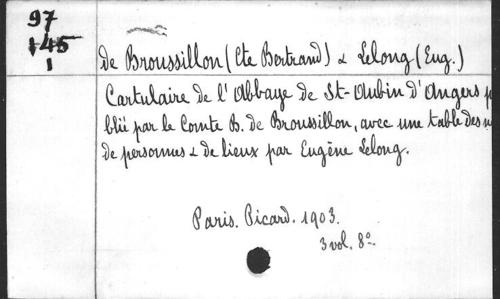 97
145
1
de Broussillon (Cte Bertrand) & Lelong (Eug.)
Cartulaire de l'Abbaye de St-Aubin d'Angers p
blié par le Comte B. de Broussillon, avec une table des n
de personnes & de lieux par Eugène Lelong.
Paris. Picard. 1903.
3 vol. 8º.